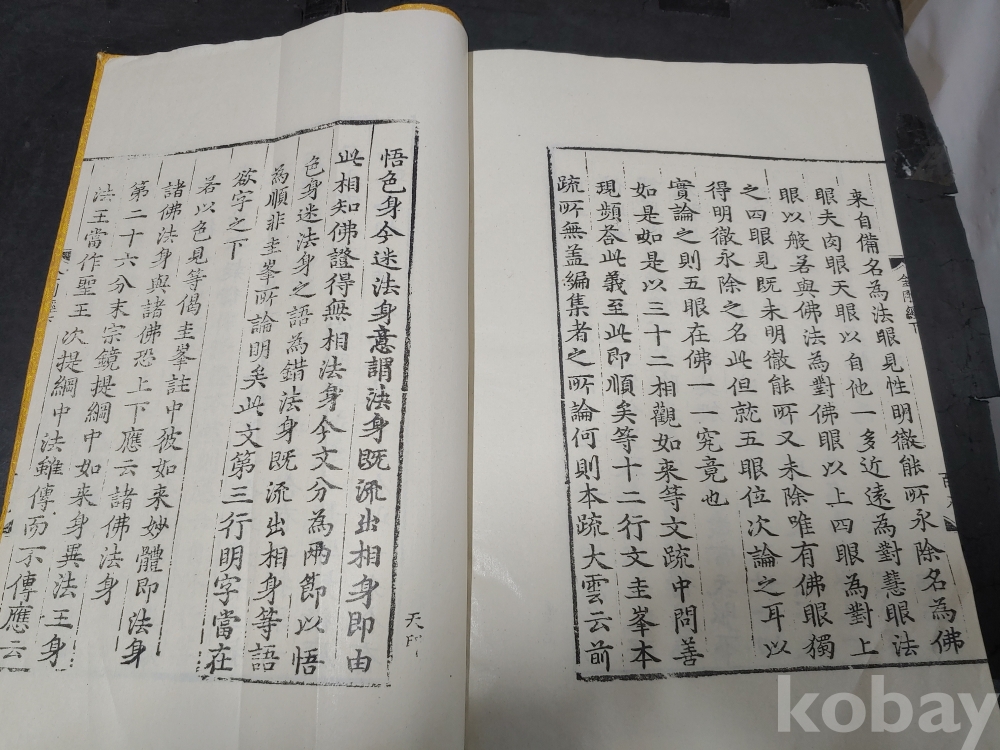 來自備名為法眼見性明徹能所永除名為佛
眼夫肉眼天眼以自他一多近遠為對慧眼法
眼以般若與佛法為對佛眼以上四眼為對上
之四眼見既未明徹能所又未除唯有佛眼獨
得明徹永除之名此但就五眼位次論之耳以
實論之則五眼在佛一一究竟也
如是如是以三十二相觀如來等文疏中問善
現頻荅此義至此即順矣等十二行文圭峯本
疏所無盖編集者之所論何則本疏大雲云前
悟色身今迷法身意謂法身既流出相身即由
此相知佛證得無相法身今文分為兩節以悟
色身迷法身之語為錯法身既流出相身等語
為順非圭峯所論明矣此文第三行明字當在
欲字之下
若以色見等偈圭峯註中彼如來妙體即法身
諸佛法身與諸佛恐上下應云諸佛法身
第二十六分末宗鏡提綱中如來身異法王身
法王當作聖王次提綱中法雖傳而不傳應云
kobay